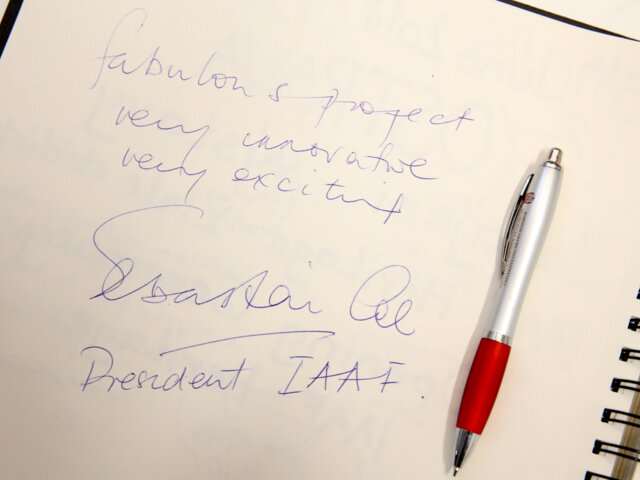 fabulous project
very innovative
very exciting
Sebastian Coe
President IAAF.